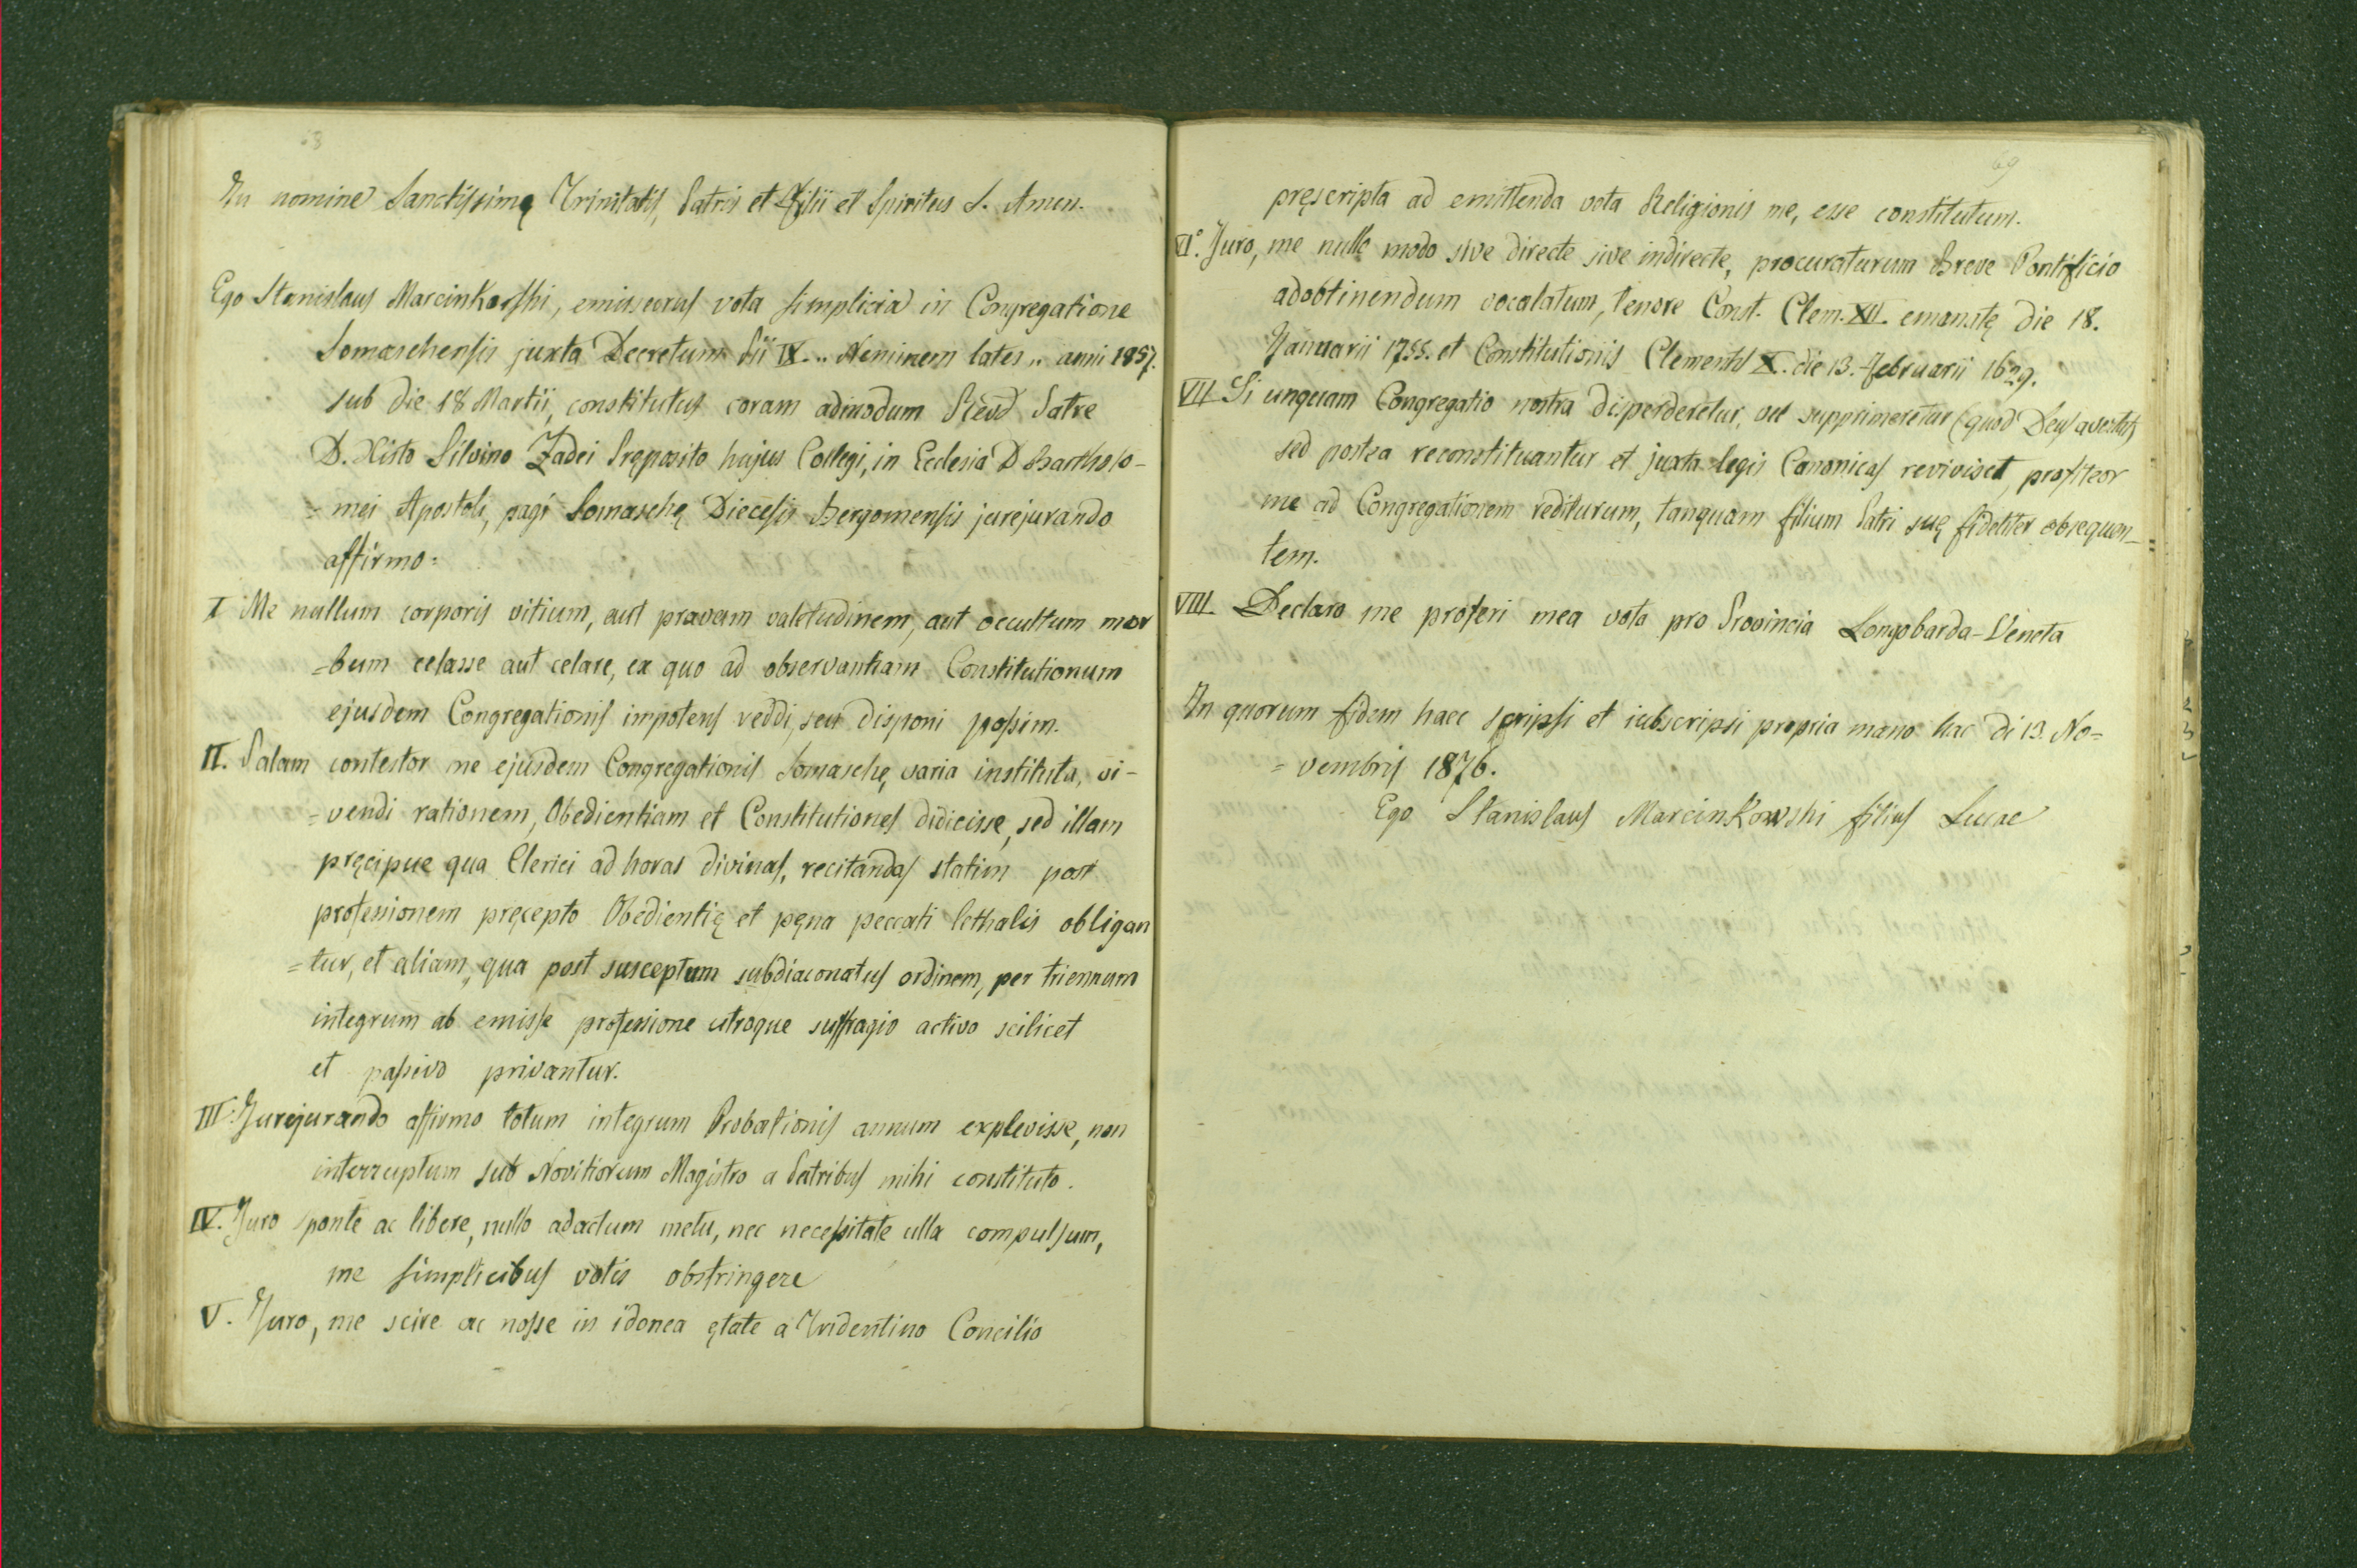 68
In nomine Sanctissimę Trinitatis, Patris et Filii et Spiritus S. Amen.
Ego Stanislaus Marcinkowski, emissurus vota simplicia in Congregatione
Somaschensis juxta Decretum Pii IX. „ Neminem latet „ anni 1857.
sub die 18 Martii, constitutus coram admodum Revd Patre
D. Xisto Silvino Zadei Pręposito hujus Collegi, in Ecclesia D Bartholo-
= męi Apostoli, pagi Somaschę Diecesis Bergomensis jurejurando
affirmo:
I Me nullum corporis vitium, aut pravam valetudinem, aut occultum mor
=bum celasse aut celare, ex quo ad observantiam Constitutionum
ejusdem Congregationis impotens reddi, seu disponi possim.
II. Palam contestor me ejusdem Congregationis Somaschę, varia instituta, vi-
=vendi rationem, Obedientiam et Constitutiones didicisse, sed illam
pręcipue qua Clerici ad horas divinas, recitandas statim post
professionem pręcepto Obedientię et pęna peccati lethalis obligan
=tur, et aliam, qua post susceptum subdiaconatus ordinem, per triennum
integrum ab emisse professione utroque suffragio activo scilicet
et passivo privantur.
III. Jurejurando affirmo totum integrum Probationis annum explevisse, non
interruptum sub Novitiorum Magistro a Patribus mihi constituto.
IV. Juro sponte ac libere, nullo adactum metu, nec necessitate ulla compulsum,
me simplicibus votis obstringere
V. Juro, me scire ac nosse in idonea ętate a Tridentino Concilio
69
pręscripta ad emittenda vota Religionis me, esse constitutum.
VI.° Juro, me nullo modo sive directe sive indirecte, procuraturum Breve Pontificio
adobtinendum vocalatum, tenore Const. Clem. XII. emanatę die 18.
Januarii 1755. et Constitutionis Clementis X. die 13. Februarii 1629.
VII Si unquam Congregatio nostra disperderetur, vel supprimeretur (quod Deus avertat)
sed postea reconstituantur et juxta legis Canonicas reviviscet, profiteor
me ad Congregationem rediturum, tanquam filium Patri suę fideliter obsequen-
tem.
VIII. Declaro me proferi mea vota pro Provincia Longobarda-Veneta
In quorum fidem haec scripsi et subscripsi propria mano hac di 13. No=
= vembris 1876.
Ego Stanislaus Marcinkowski filius Lucae